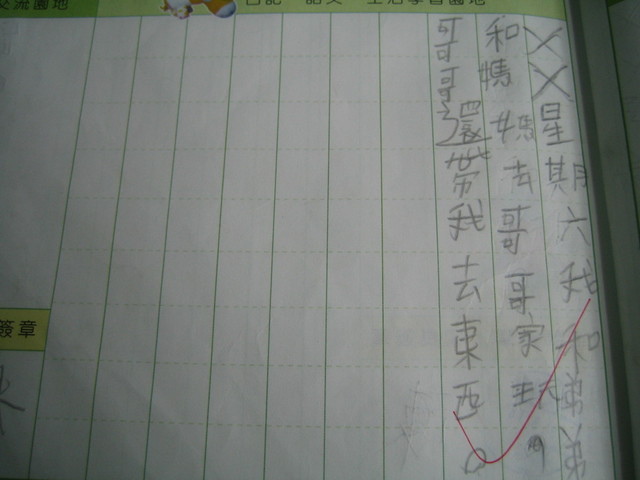 交流園地
日記 語文 生活學習園地
XX星期六我和弟弟
和媽媽去哥哥家玩,
哥哥還帶我去東西。
簽章